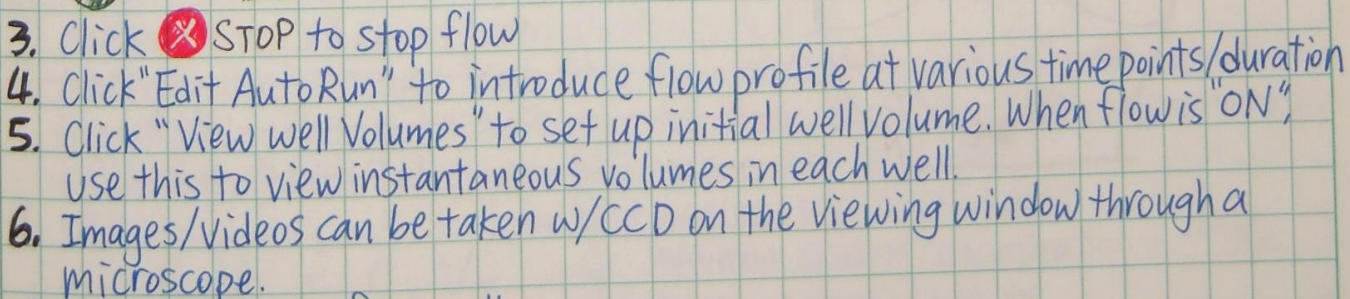 3. Click ⊗ STOP to stop flow
4. Click "Edit AutoRun" to introduce flow profile at various time points/duration
5. Click "View well Volumes" to set up initial well volume. When flow is "ON",
use this to view instantaneous volumes in each well.
6. Images/Videos can be taken w/CCD on the viewing window through a
microscope.